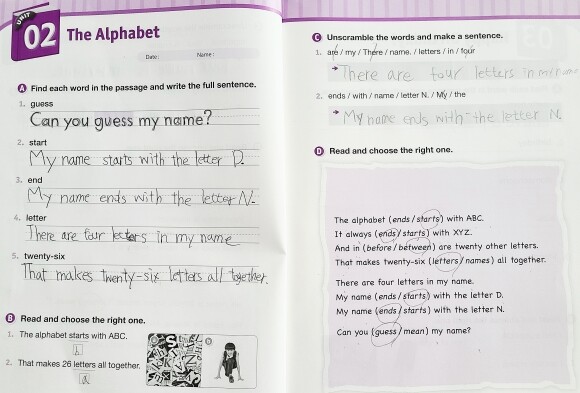 UNIT
02 The Alphabet
Date :
Name :
A Find each word in the passage and write the full sentence.
1. guess
Can you guess my name?
2. start
My name starts with the letter D.
3. end
My name ends with the letter N.
4. letter
There are four letters in my name
5. twenty-six
That makes twenty-six letters all together.
B Read and choose the right one.
1. The alphabet starts with ABC.
b
2. That makes 26 letters all together.
a
C Unscramble the words and make a sentence.
1. are / my / There / name. / letters / in / four
There are four letters in my name
2. ends / with / name / letter N. / My / the
My name ends with the letter N.
D Read and choose the right one.
The alphabet (ends / starts) with ABC.
It always (ends / starts) with XYZ.
And in (before / between) are twenty other letters.
That makes twenty-six (letters / names) all together.
There are four letters in my name.
My name (ends / starts) with the letter D.
My name (ends / starts) with the letter N.
Can you (guess / mean) my name?